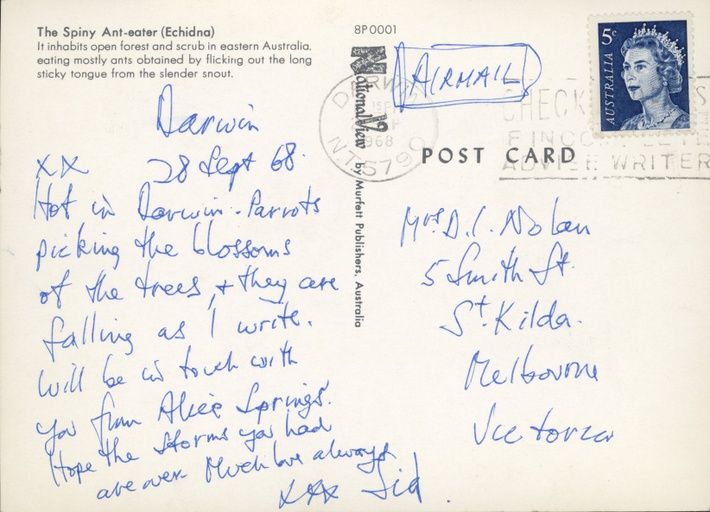 The Spiny Ant-eater (Echidna)
It inhabits open forest and scrub in eastern Australia,
eating mostly ants obtained by flicking out the long
sticky tongue from the slender snout.
8P0001
NationalView by Murfett Publishers, Australia
AIRMAIL
5c
AUSTRALIA
DARWIN
1968
N.T. 5790
CHECK
ADVISE WRITER
POST CARD
Darwin
XX 28 Sept 68.
Hot in Darwin. Parrots
picking the blossoms
of the trees, & they are
falling as I write.
Will be in touch with
you from Alice Springs.
Hope the storms you had
are over. Much love always
xxx Sid.
Mrs. D. I. Nolan
5 Smith St.
St. Kilda.
Melbourne
Victoria